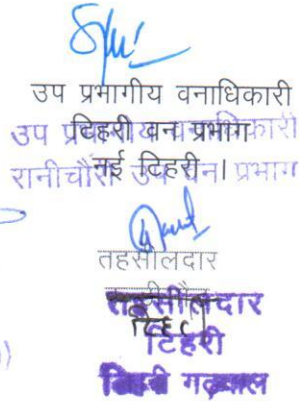 उप प्रभागीय वनाधिकारी
टिहरी वन प्रभाग
नई टिहरी।
उप प्रभागीय वनाधिकारी
रानीचौरी उप वन प्रभाग
तहसीलदार
तहसीलदार
टिहरी
टिहरी गढ़वाल